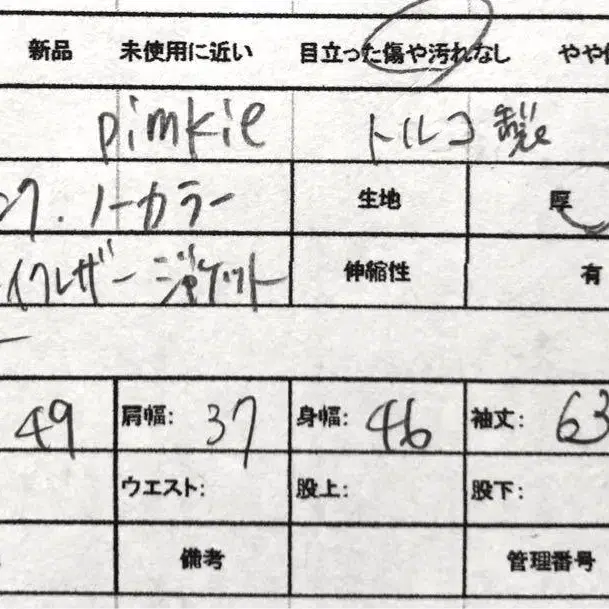 新品 未使用に近い 目立った傷や汚れなし やや
pimkie トルコ製
ノーカラー 生地 厚
イクレザージャケット 伸縮性 有
49 肩幅: 37 身幅: 46 袖丈: 63
ウエスト: 股上: 股下:
備考 管理番号